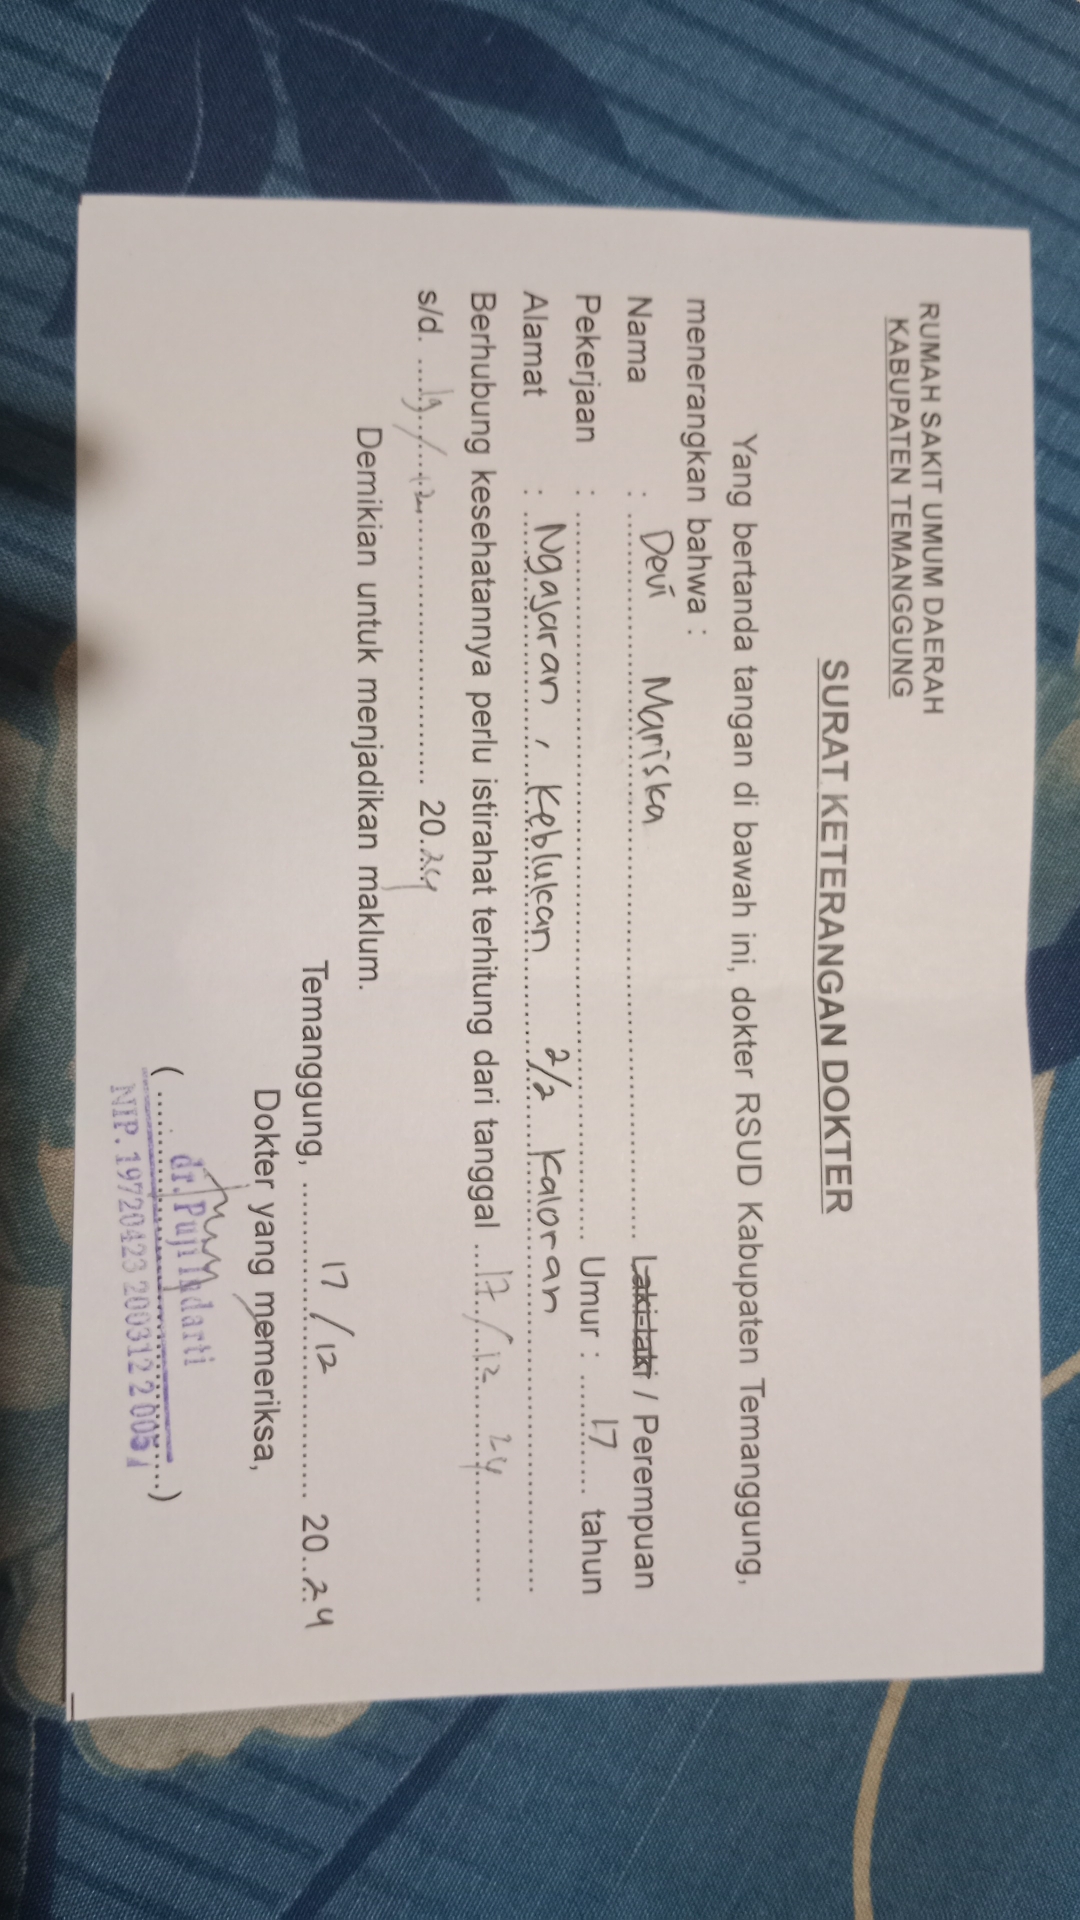 RUMAH SAKIT UMUM DAERAH
KABUPATEN TEMANGGUNG
SURAT KETERANGAN DOKTER
Yang bertanda tangan di bawah ini, dokter RSUD Kabupaten Temanggung,
menerangkan bahwa :
Nama : Devi Mariska Laki-laki / Perempuan
Pekerjaan : Umur : 17 tahun
Alamat : Ngajaran, Keblukan 2/2 Kaloran
Berhubung kesehatannya perlu istirahat terhitung dari tanggal 17/12 24
s/d. 19/12 2024
Demikian untuk menjadikan maklum.
Temanggung, 17/12 2024
Dokter yang memeriksa,
(dr. Puji Indarti)
NIP. 19720423 200312 2 005